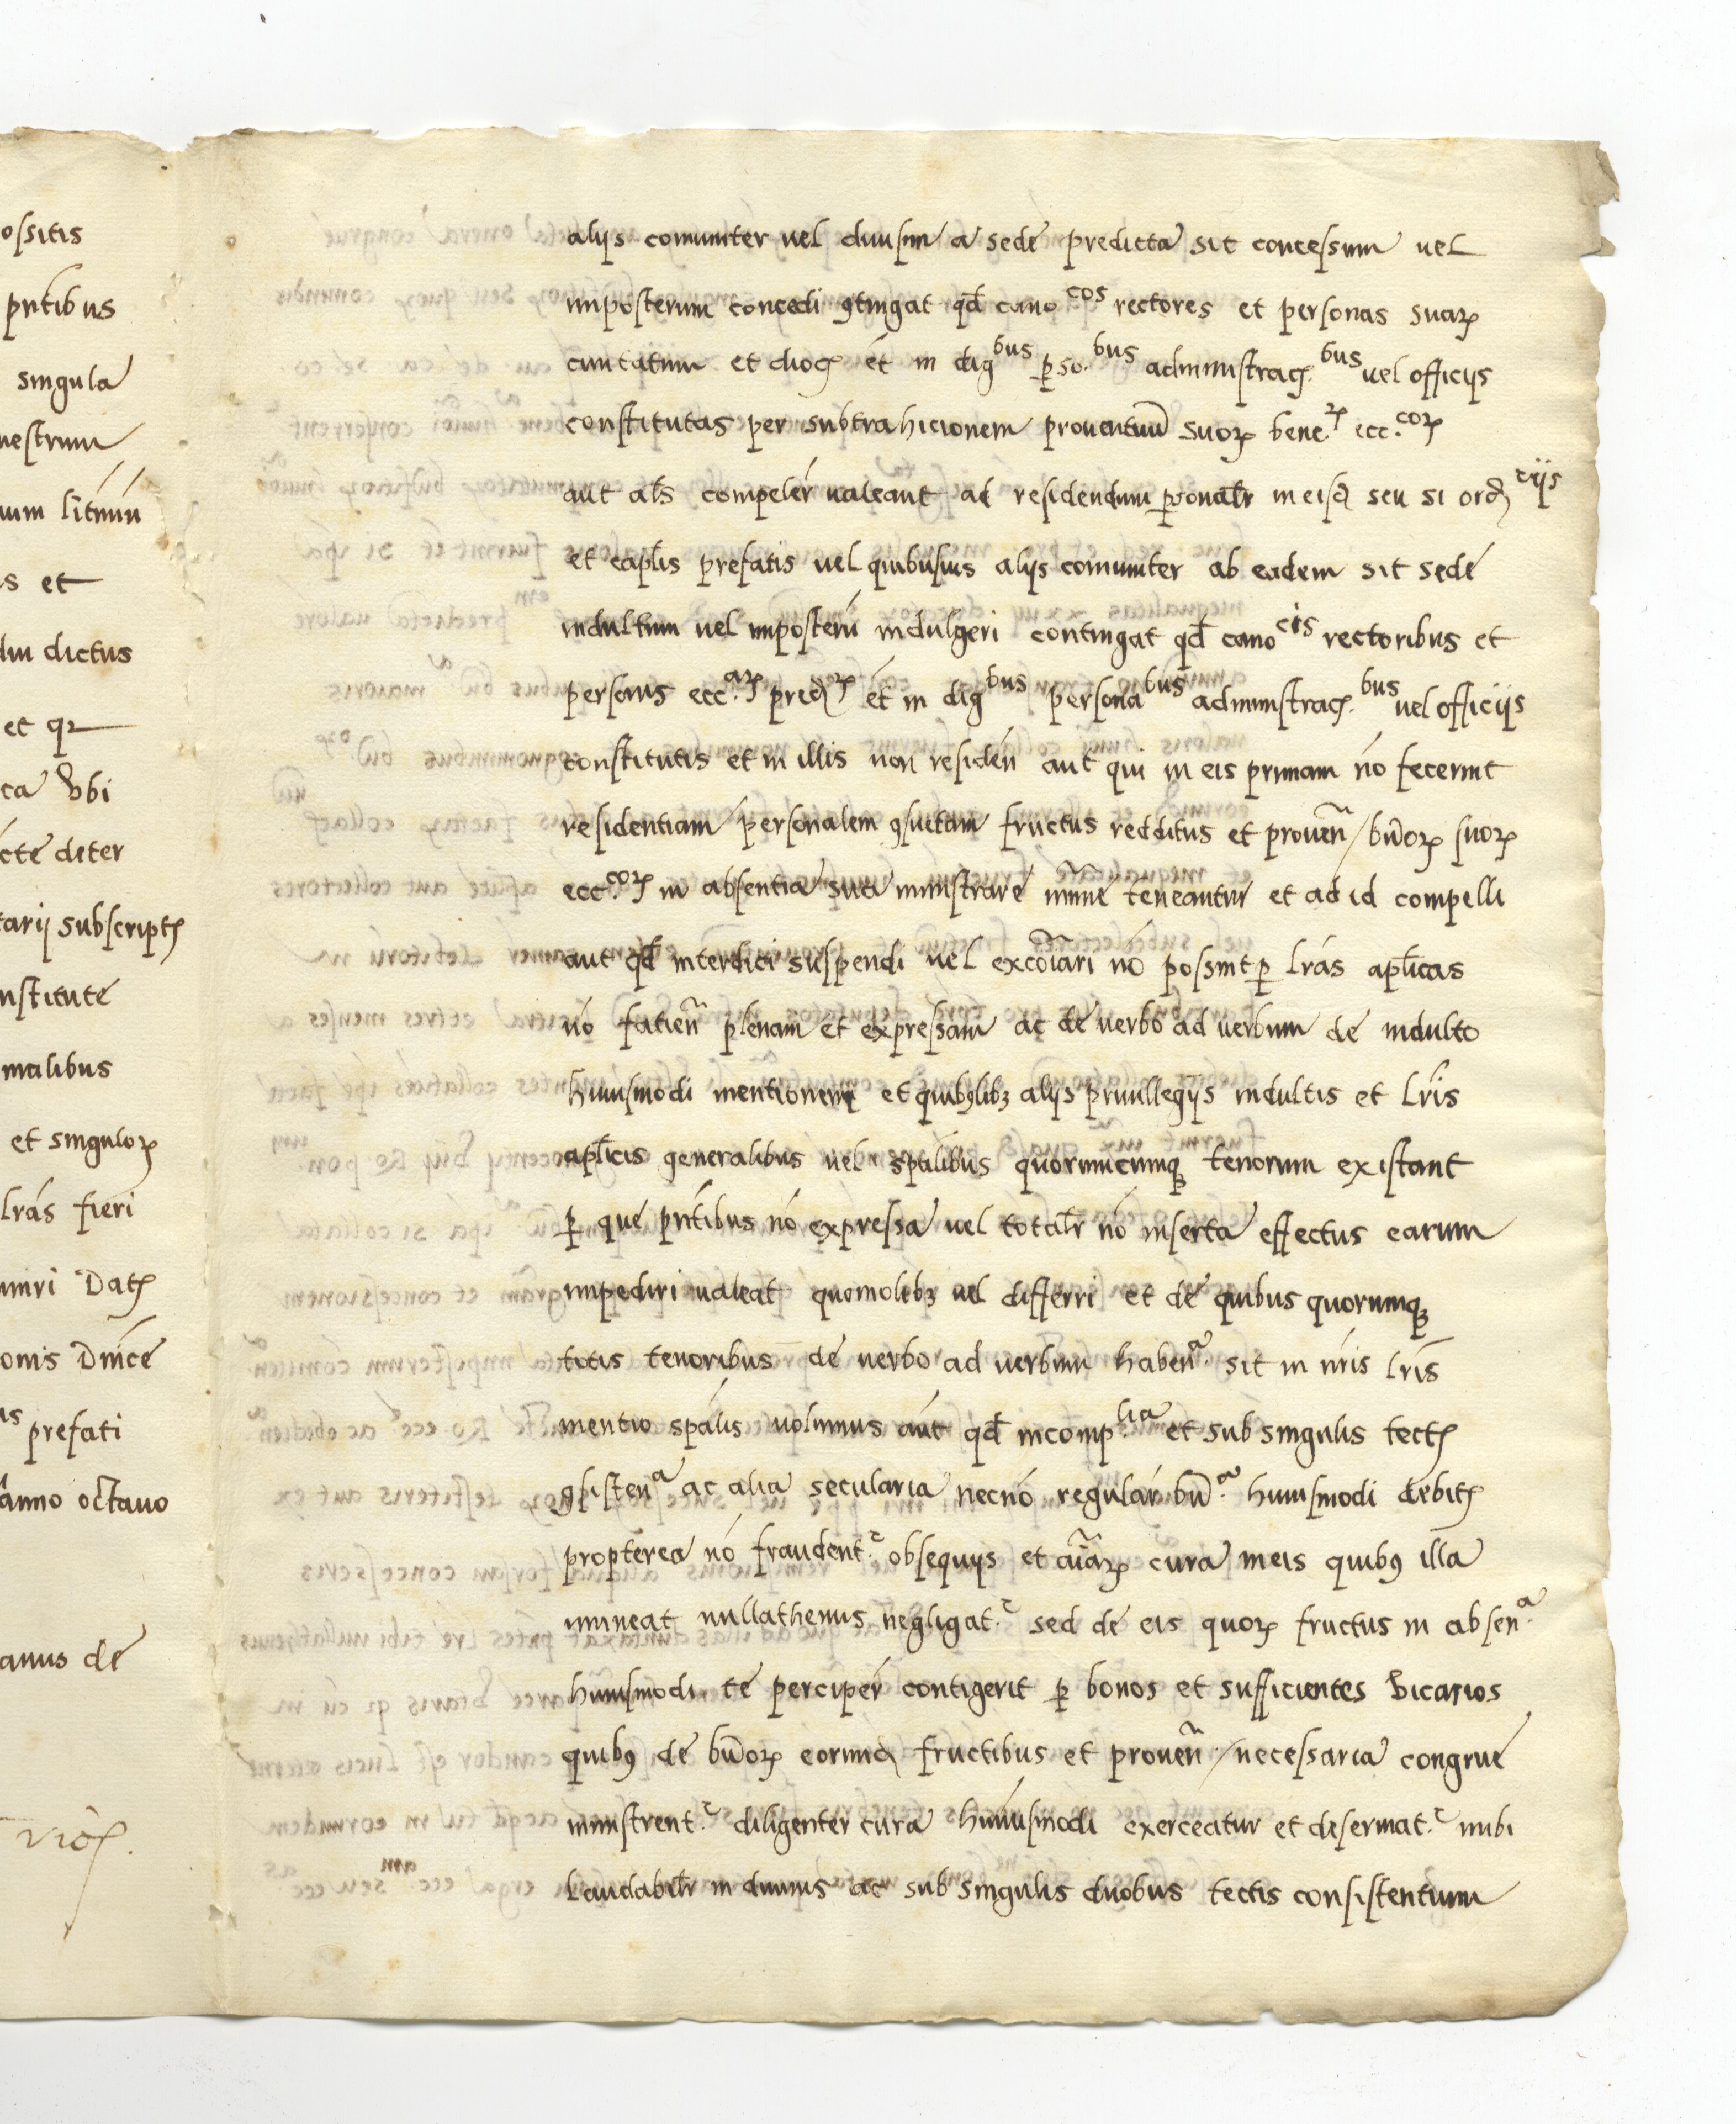 ossitis
pntibus
singula
nestrum
um litmuu
s et
diu dictus
et qr
ca Vbi
cte diter
tarij subscript
nstitute
malibus
et singulorꝝ
lras fieri
Dat
onis Dnice
is prefati
anno octauo
anus de
alijs comuniter uel diuisim a sede predicta sit concessum uel
imposterum concedi ꝯtingat qđ canoᶜᵒˢ rectores et personas suarꝝ
ciuitatum et dioc̄ et in digᵇᵘˢ ꝑso.ᵇᵘˢ administrac̄.ᵇᵘˢ uel officijs
constitutas per subtrahicionem prouentuū suorꝝ bene.ꝝ ecc.ᶜᵒꝝ
aut als compeler ualeant ad residendum ꝑsonalr in eisđ seu si ordᶜⁱʲˢ
et caplis prefatis uel quibusuis alijs comuniter ab eadem sit sede
indultum uel imposterū indulgeri contingat qđ canoᶜⁱˢ rectoribus et
personis ecc.ᵃꝝ pred.ꝝ et in digᵇᵘˢ personaᵇᵘˢ administrac̄.ᵇᵘˢ uel officijs
constitutis et in illis non residen̄ aut qui in eis primam nō fecerint
residentiam personalem ꝯsuetam fructus redditus et prouen̄ / bn̄orꝝ suorꝝ
ecc.ᶜᵒꝝ in absentia sua ministrare minime teneantur et ad id compelli
aut qđ interdici suspendi uel excōiari nō possint ꝑ lras aplicas
nō facien̄ plenam et expressam ac de uerbo ad uerbum de indulto
huiusmodi mentionem et quibꝯlibꝫ alijs priuillegijs indultis et lris
aplicis generalibus uel spalibus quorumcumqꝫ tenorum existant
ꝑ que pntibus nō expressa uel totalr nō inserta effectus earum
impediri ualeat quomolibꝫ uel differri et de quibus quorumqꝫ
totis tenoribus de uerbo ad uerbum haben̄.ᵃ sit in nris lris
mentio spalis uolumus aut qđ incomp.ˡⁱᵃ et sub singulis tect
ꝯsisten̄ᵃ ac alia secularia necnō regular bn̄.ᵃ huiusmodi debit
propterea nō fraudent.ᶜ obsequijs et aīarꝝ cura in eis quibꝯ illa
immineat nullathenus negligat.ᶜ sed de eis quorꝝ fructus in absen̄.ᵃ
huiusmodi te perciper contigerit ꝑ bonos et sufficientes Vicarios
quibꝯ de bn̄orꝝ eorund fructibus et prouen̄ / necessaria congrue
ministrent.ᶜ diligenter cura huiusmodi exerceatur et deseruiat.ᶜ inibi
laudabilr in diuinis ac sub singulis duobus tectis consistentium